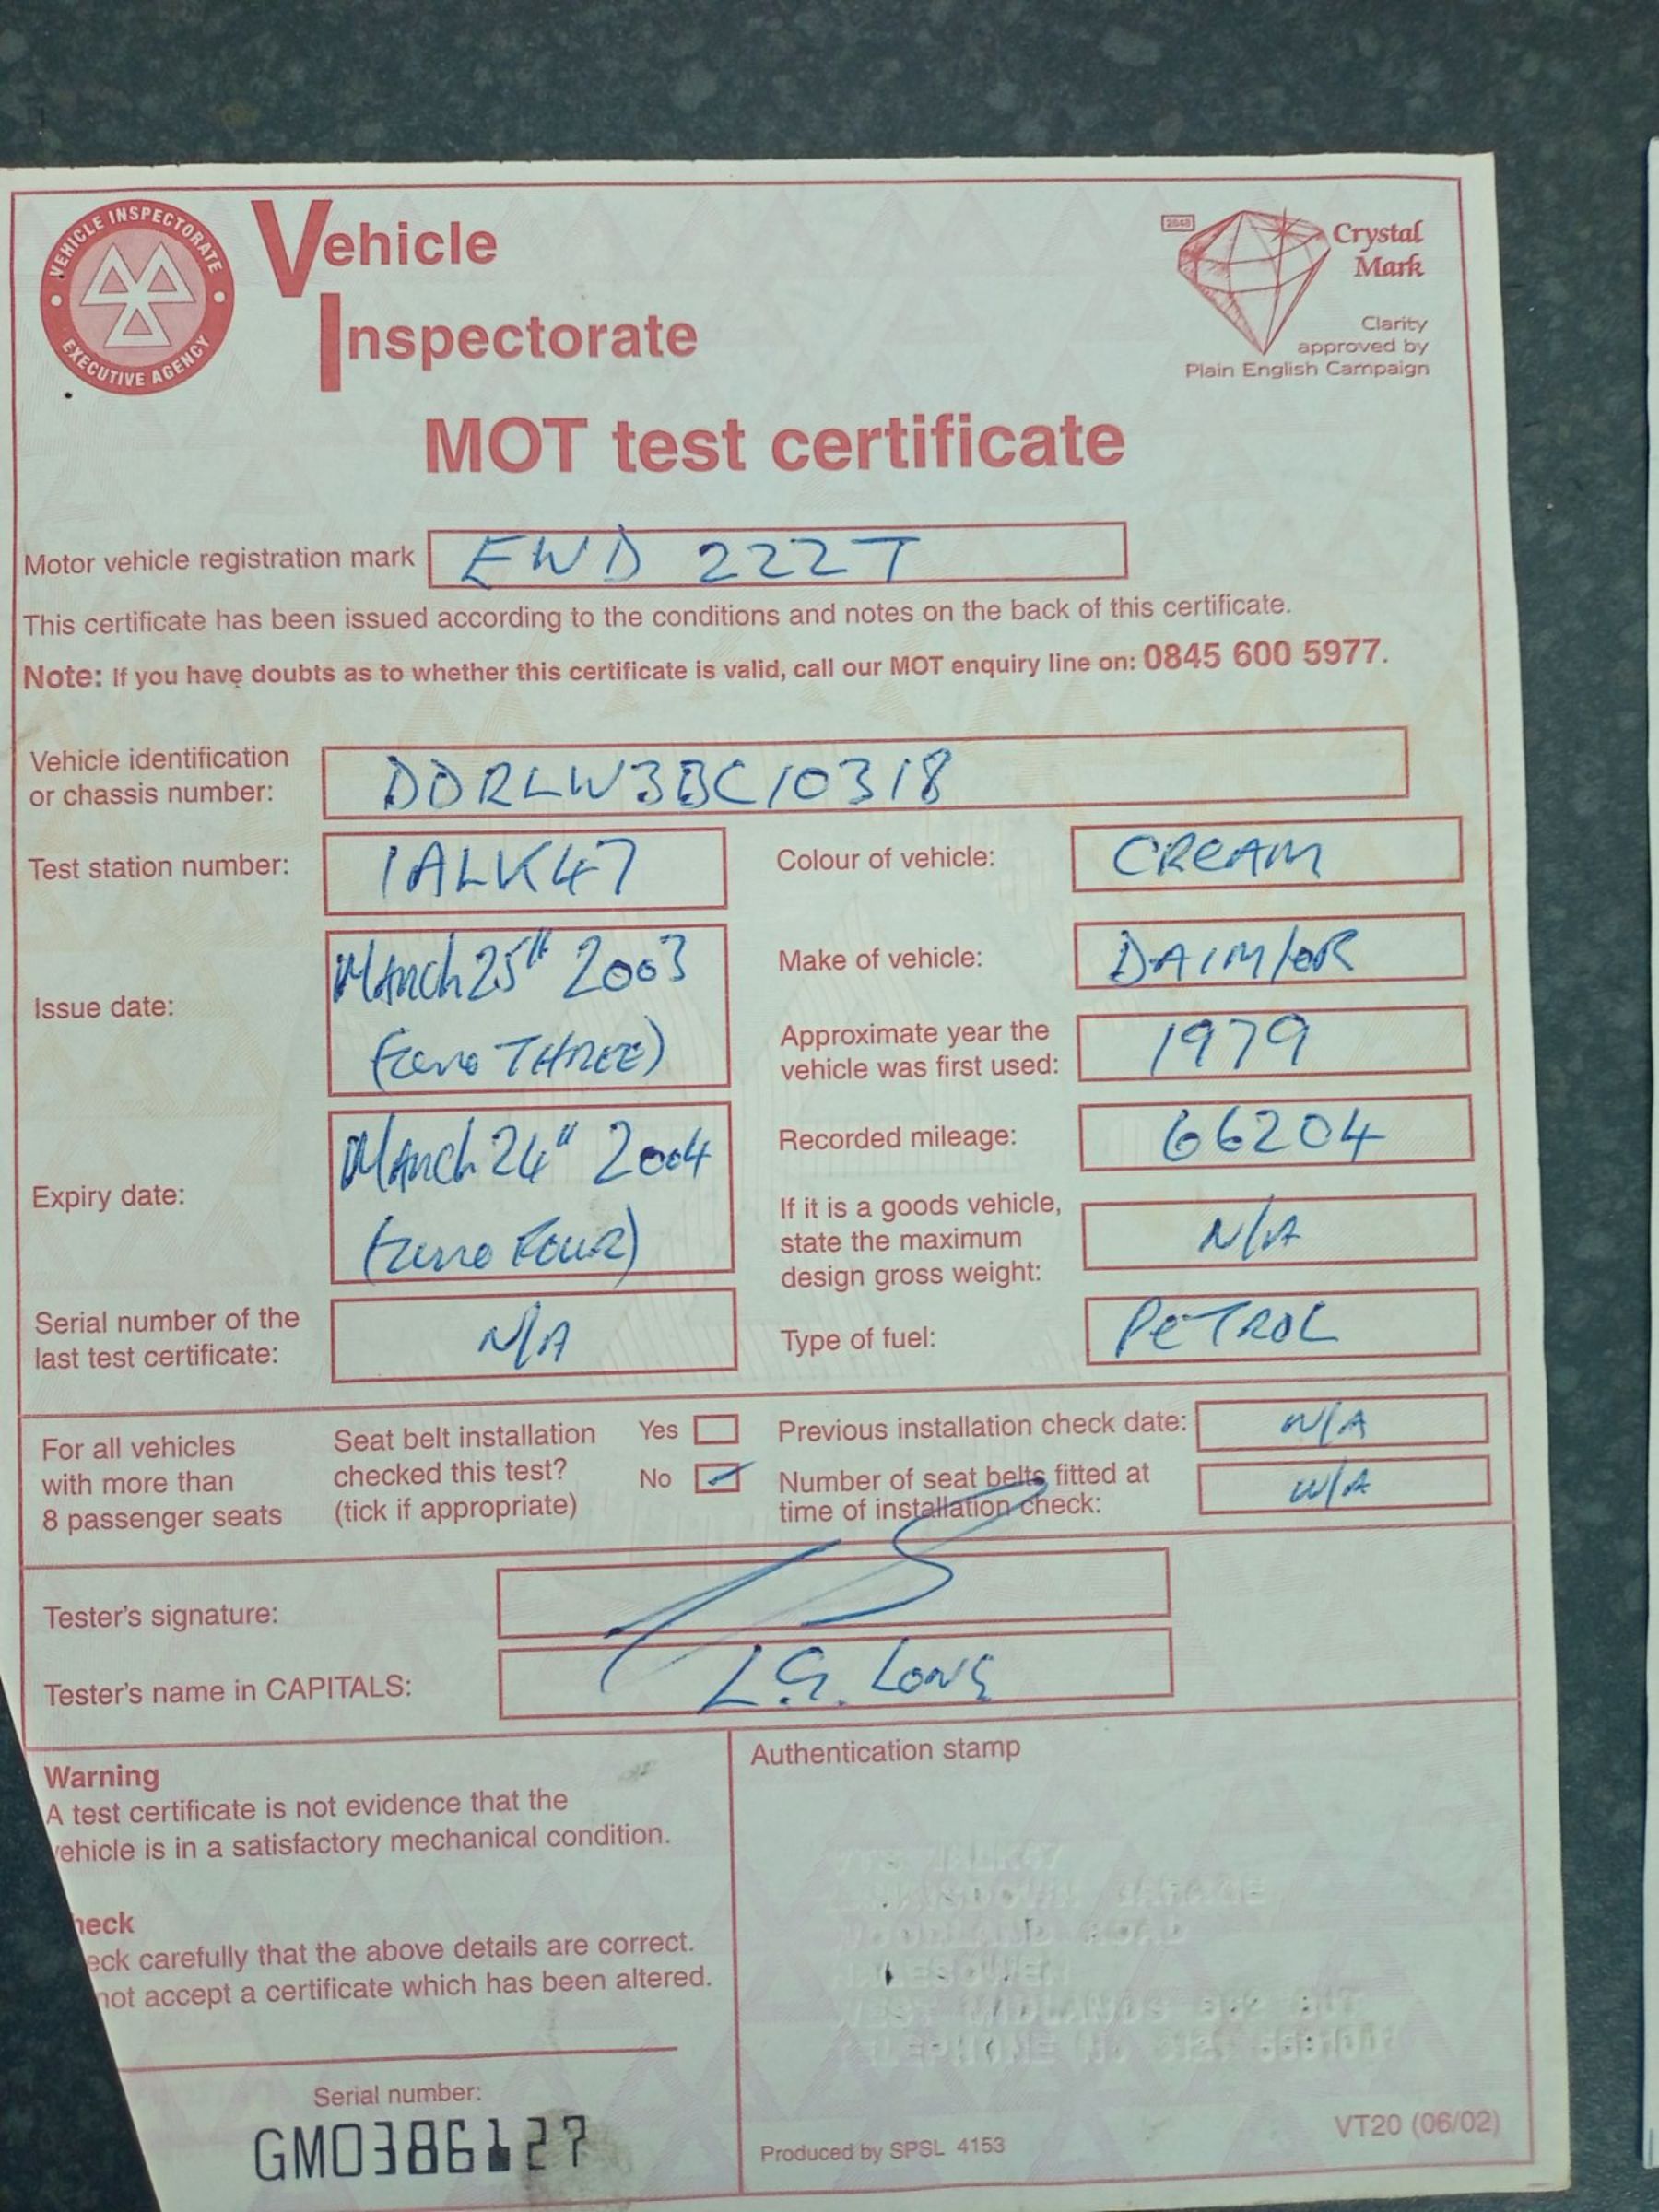 VEHICLE INSPECTORATE
EXECUTIVE AGENCY
Vehicle
Inspectorate
2640
Crystal
Mark
Clarity
approved by
Plain English Campaign
MOT test certificate
Motor vehicle registration mark EWD 222T
This certificate has been issued according to the conditions and notes on the back of this certificate.
Note: If you have doubts as to whether this certificate is valid, call our MOT enquiry line on: 0845 600 5977.
Vehicle identification
or chassis number: DDRLW3BC10318
Test station number: 1ALK47
Colour of vehicle: CREAM
Issue date: March 25th 2003
(zero THREE)
Make of vehicle: DAIMleR
Approximate year the
vehicle was first used: 1979
Expiry date: March 24th 2004
(zero FOUR)
Recorded mileage: 66204
If it is a goods vehicle,
state the maximum
design gross weight: N/A
Serial number of the
last test certificate: N/A
Type of fuel: PeTROL
For all vehicles
with more than
8 passenger seats
Seat belt installation
checked this test?
(tick if appropriate)
Yes
No
Previous installation check date: N/A
Number of seat belts fitted at
time of installation check: N/A
Tester's signature:
Tester's name in CAPITALS: L.G. LONG
Warning
A test certificate is not evidence that the
vehicle is in a satisfactory mechanical condition.
heck
eck carefully that the above details are correct.
not accept a certificate which has been altered.
Serial number:
GM0386127
Authentication stamp
GARAGE
ROAD
WEST MIDLANDS
TELEPHONE No
Produced by SPSL 4153
VT20 (06/02)